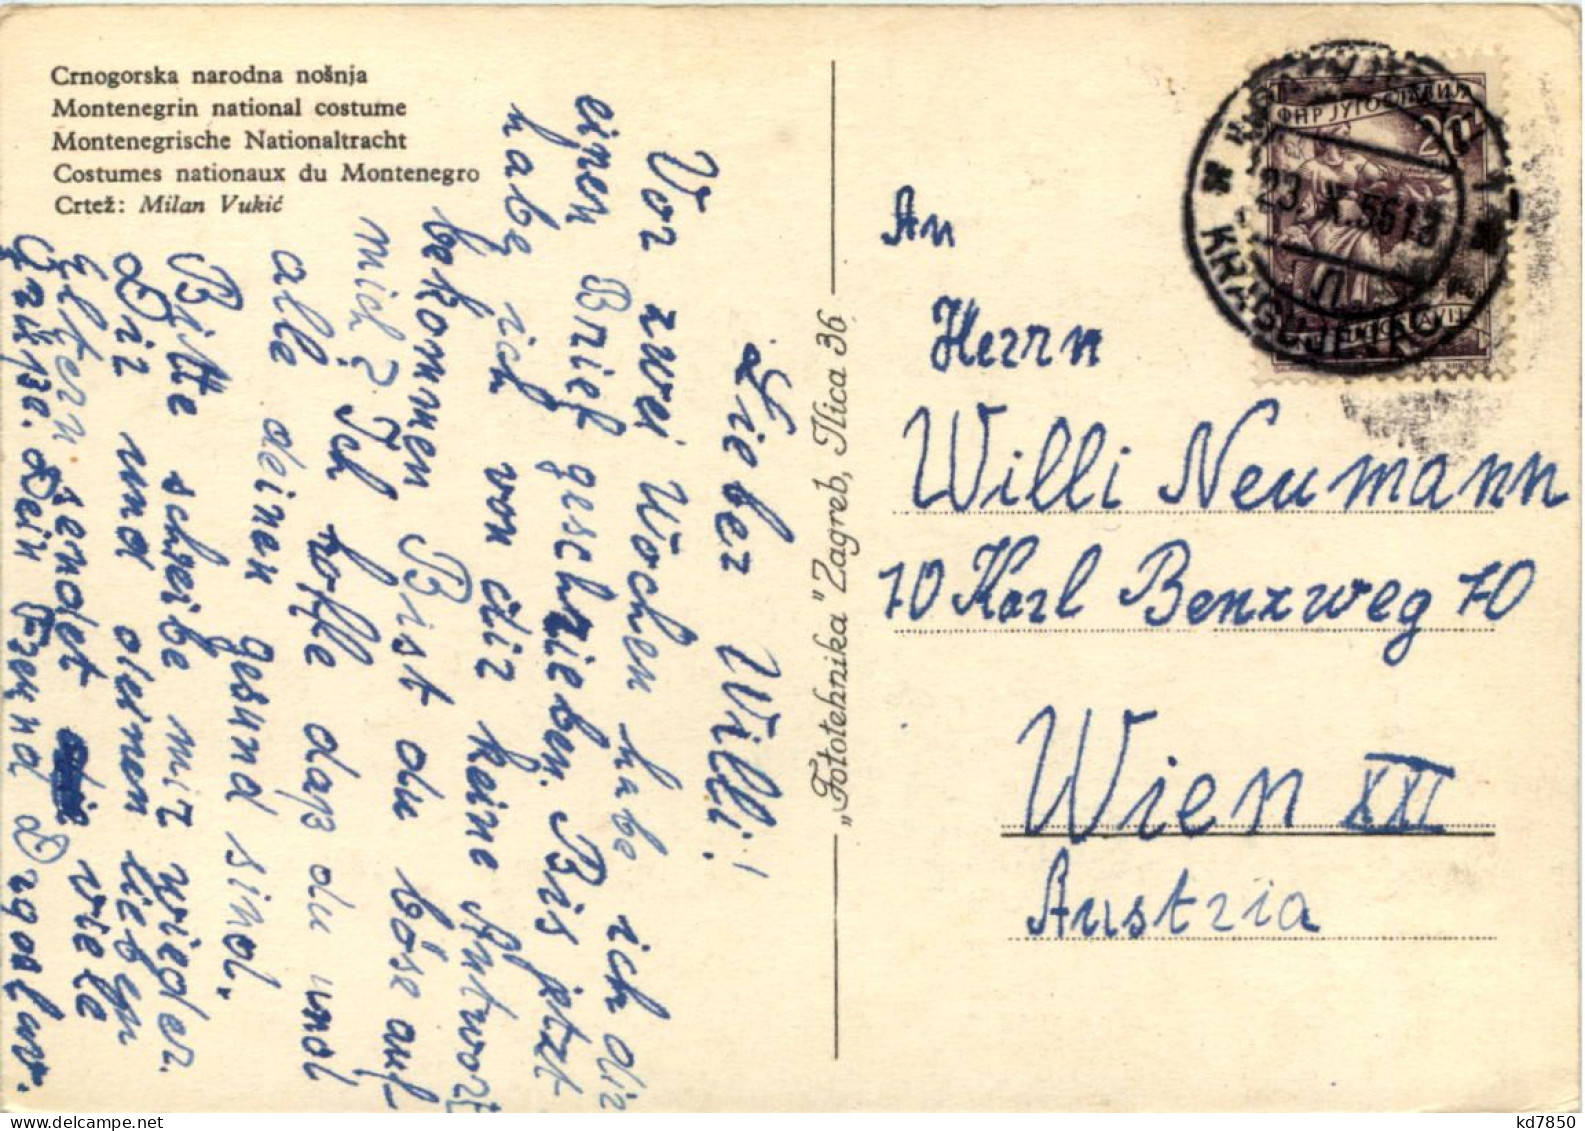 Crnogorska narodna nošnja
Montenegrin national costume
Montenegrische Nationaltracht
Costumes nationaux du Montenegro
Crtež: Milan Vukić
Lieber Willi!
Vor zwei Wochen habe ich dir
einen Brief geschrieben. Bis jetzt
habe ich von dir keine Antwort
bekommen. Bist du böse auf
mich? Ich hoffe daß du und
alle deinen gesund sind.
Bitte schreibe mir wieder.
Dir und deinen lieben
Eltern sendet viele
Grüße. Dein Freund
„Fototehnika" Zagreb, Ilica 36
ФНР ЈУГОСЛАВИЈА
20
23. X. 56 13
KRAGUJEVAC
An
Herrn
Willi Neumann
10 Karl Benzweg 10
Wien XXI
Austria
www.delcampe.net
kd7850